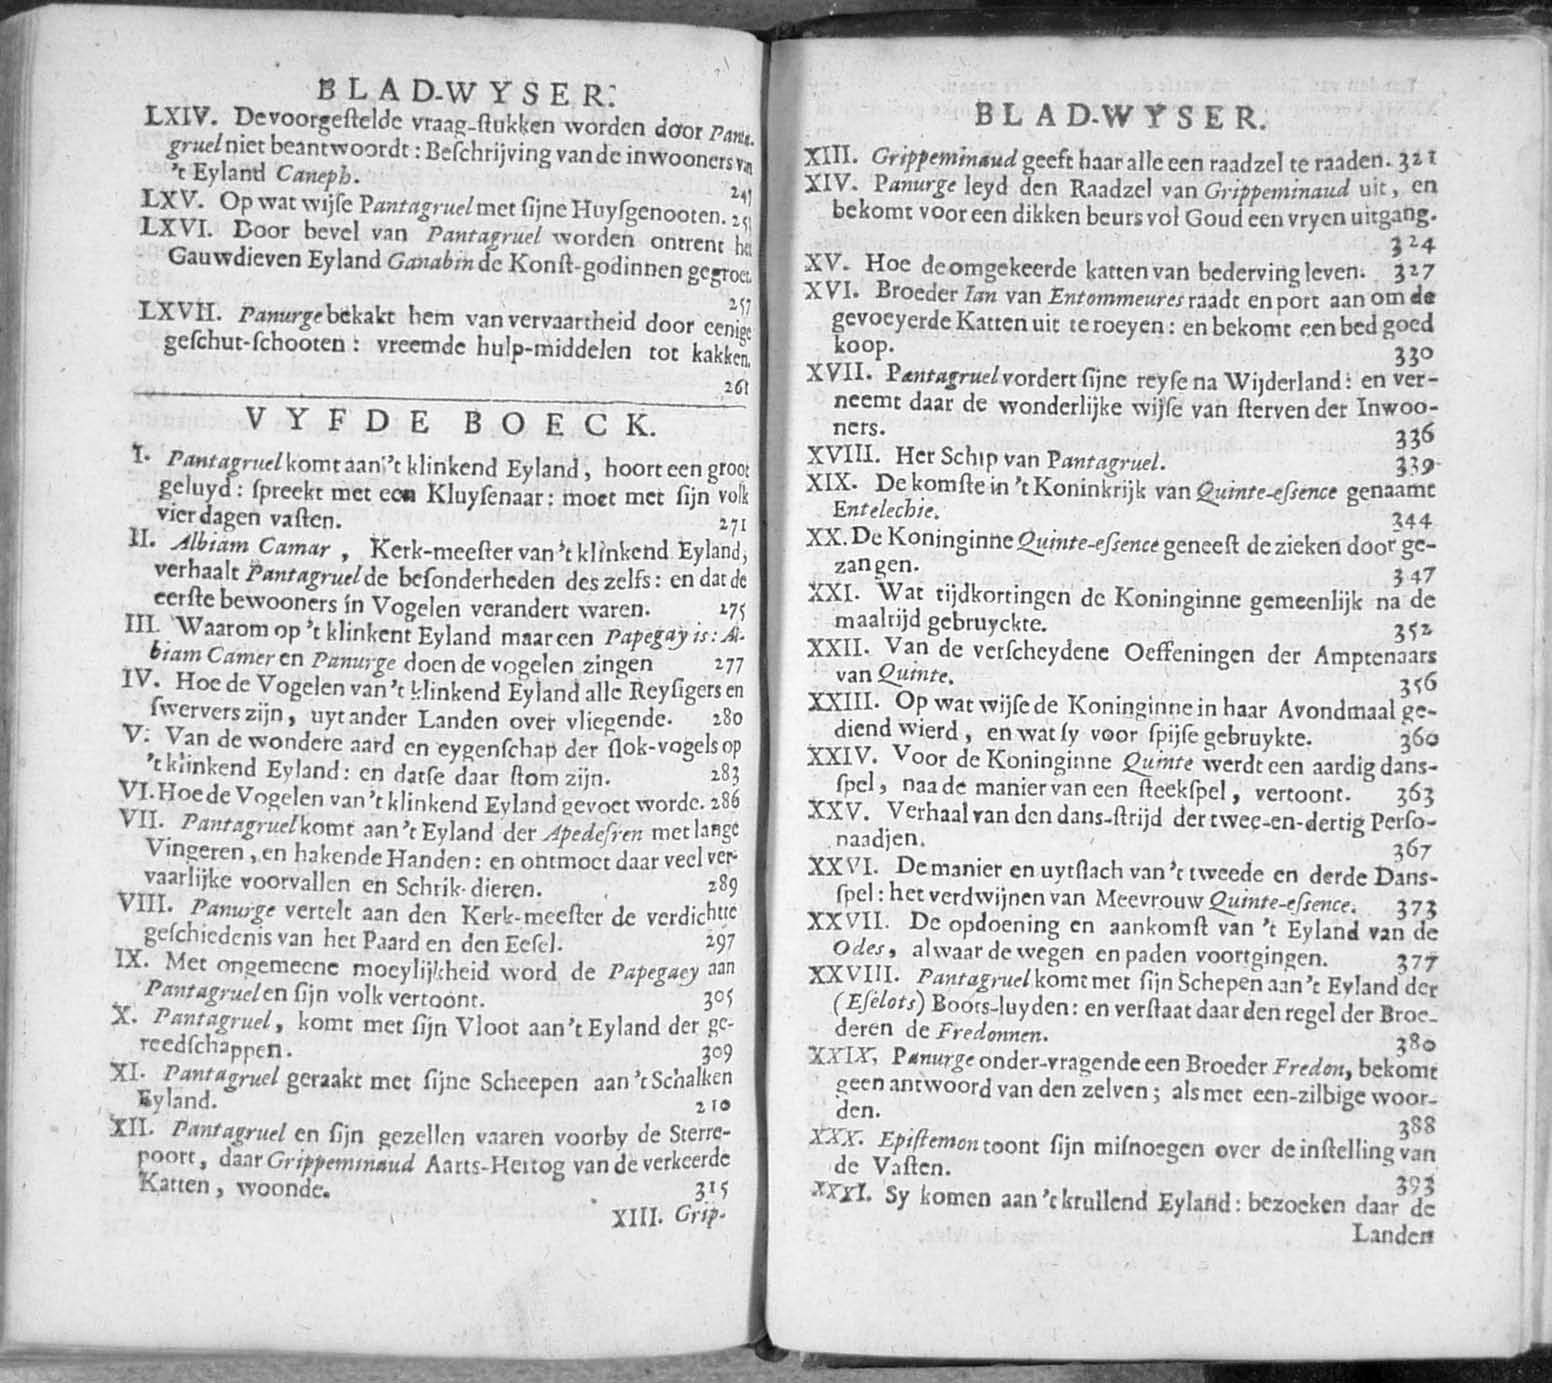 BLAD-WYSER.
LXIV. De voorgeſtelde vraag-ſtukken worden door Panta-
gruel niet beantwoordt: Beſchrijving van de inwooners van
't Eyland Caneph. 247
LXV. Op wat wijſe Pantagruel met ſijne Huyſgenooten. 251
LXVI. Door bevel van Pantagruel worden ontrent het
Gauwdieven Eyland Ganabin de Konſt-godinnen gegroet.
257
LXVII. Panurge bekakt hem van vervaartheid door eenige
geſchut-ſchooten: vreemde hulp-middelen tot kakken.
261
VYFDE BOECK.
I. Pantagruel komt aan 't klinkend Eyland, hoort een groot
geluyd: ſpreekt met een Kluyſenaar: moet met ſijn volk
vier dagen vaſten. 271
II. Albiam Camar, Kerk-meeſter van 't klinkend Eyland,
verhaalt Pantagruel de beſonderheden des zelfs: en dat de
eerſte bewooners in Vogelen verandert waren. 275
III. Waarom op 't klinkent Eyland maar een Papegay is: Al-
biam Camer en Panurge doen de vogelen zingen 277
IV. Hoe de Vogelen van 't klinkend Eyland alle Reyſigers en
ſwervers zijn, uyt ander Landen over vliegende. 280
V. Van de wondere aard en eygenſchap der ſlok-vogels op
't klinkend Eyland: en datſe daar ſtom zijn. 283
VI. Hoe de Vogelen van 't klinkend Eyland gevoet worde. 286
VII. Pantagruel komt aan 't Eyland der Apedefren met lange
Vingeren, en hakende Handen: en ontmoet daar veel ver-
vaarlijke voorvallen en Schrik-dieren. 289
VIII. Panurge vertelt aan den Kerk-meeſter de verdichtte
geſchiedenis van het Paard en den Eeſel. 297
IX. Met ongemeene moeylijkheid word de Papegaey aan
Pantagruel en ſijn volk vertoont. 305
X. Pantagruel, komt met ſijn Vloot aan 't Eyland der ge-
reedſchappen. 309
XI. Pantagruel geraakt met ſijne Scheepen aan 't Schalken
Eyland. 210
XII. Pantagruel en ſijn gezellen vaaren voorby de Sterre-
poort, daar Grippeminaud Aarts-Hertog van de verkeerde
Katten, woonde. 315
XIII. Grip-
BLAD-WYSER.
XIII. Grippeminaud geeft haar alle een raadzel te raaden. 321
XIV. Panurge leyd den Raadzel van Grippeminaud uit, en
bekomt voor een dikken beurs vol Goud een vryen uitgang.
324
XV. Hoe de omgekeerde katten van bederving leven. 327
XVI. Broeder Ian van Entommeures raadt en port aan om de
gevoeyerde Katten uit te roeyen: en bekomt een bed goed
koop. 330
XVII. Pantagruel vordert ſijne reyſe na Wijderland: en ver-
neemt daar de wonderlijke wijſe van ſterven der Inwoo-
ners. 336
XVIII. Her Schip van Pantagruel. 339
XIX. De komſte in 't Koninkrijk van Quinte-eſsence genaamt
Entelechie. 344
XX. De Koninginne Quinte-eſsence geneeſt de zieken door ge-
zangen. 347
XXI. Wat tijdkortingen de Koninginne gemeenlijk na de
maaltijd gebruyckte. 352
XXII. Van de verſcheydene Oeffeningen der Amptenaars
van Quinte. 356
XXIII. Op wat wijſe de Koninginne in haar Avondmaal ge-
diend wierd, en wat ſy voor ſpijſe gebruykte. 360
XXIV. Voor de Koninginne Quinte werdt een aardig dans-
ſpel, na a de manier van een ſteekſpel, vertoont. 363
XXV. Verhaal van den dans-ſtrijd der twee-en-dertig Perſo-
naadjen. 367
XXVI. De manier en uytſlach van 't tweede en derde Dans-
ſpel: het verdwijnen van Meevrouw Quinte-eſsence. 373
XXVII. De opdoening en aankomſt van 't Eyland van de
Odes, alwaar de wegen en paden voortgingen. 377
XXVIII. Pantagruel komt met ſijn Schepen aan 't Eyland der
(Eſelots) Boots-luyden: en verſtaat daar den regel der Broe-
deren de Fredonnen. 380
XXIX. Panurge onder-vragende een Broeder Fredon, bekomt
geen antwoord van den zelven; als met een-zilbige woor-
den. 388
XXX. Epiſtemon toont ſijn miſnoegen over de inſtelling van
de Vaſten. 393
XXXI. Sy komen aan 't krullend Eyland: bezoeken daar de
Landen